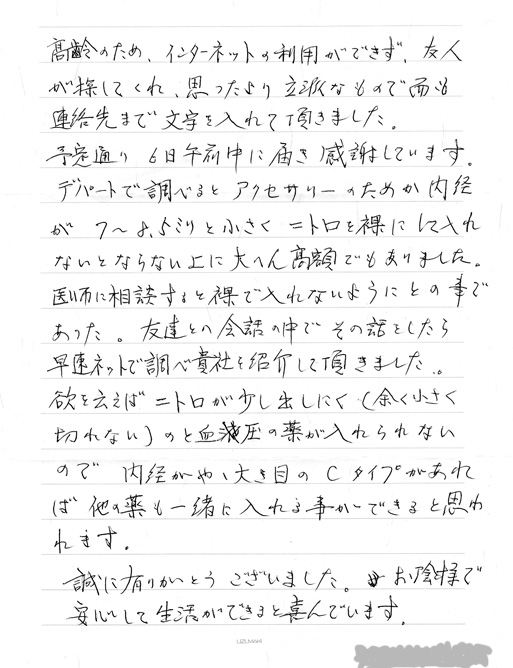 高齢のため、インターネットの利用ができず、友人
が探してくれ、思ったより立派なもので而も
連絡先まで文字を入れて頂きました。
予定通り 6日午前中に届き感謝しています。
デパートで調べると アクセサリーのためか内径
が 7〜8.5ミリと小さく ニトロを裸にして入れ
ないとならない上に大へん高額でもありました。
医師に相談すると裸で入れないようにとの事で
あった。友達との会話の中で その話をしたら
早速ネットで調べ貴社を紹介して頂きました。
欲を云えば ニトロが少し出しにくく(余く小さく
切れない)のと血圧の薬が入れられない
ので 内径がやゝ大き目の Cタイプがあれ
ば 他の薬も一緒に入れる事ができると思わ
れます。
誠に有りがとうございました。お陰様で
安心して生活ができると喜んでいます。
UZUMAKI